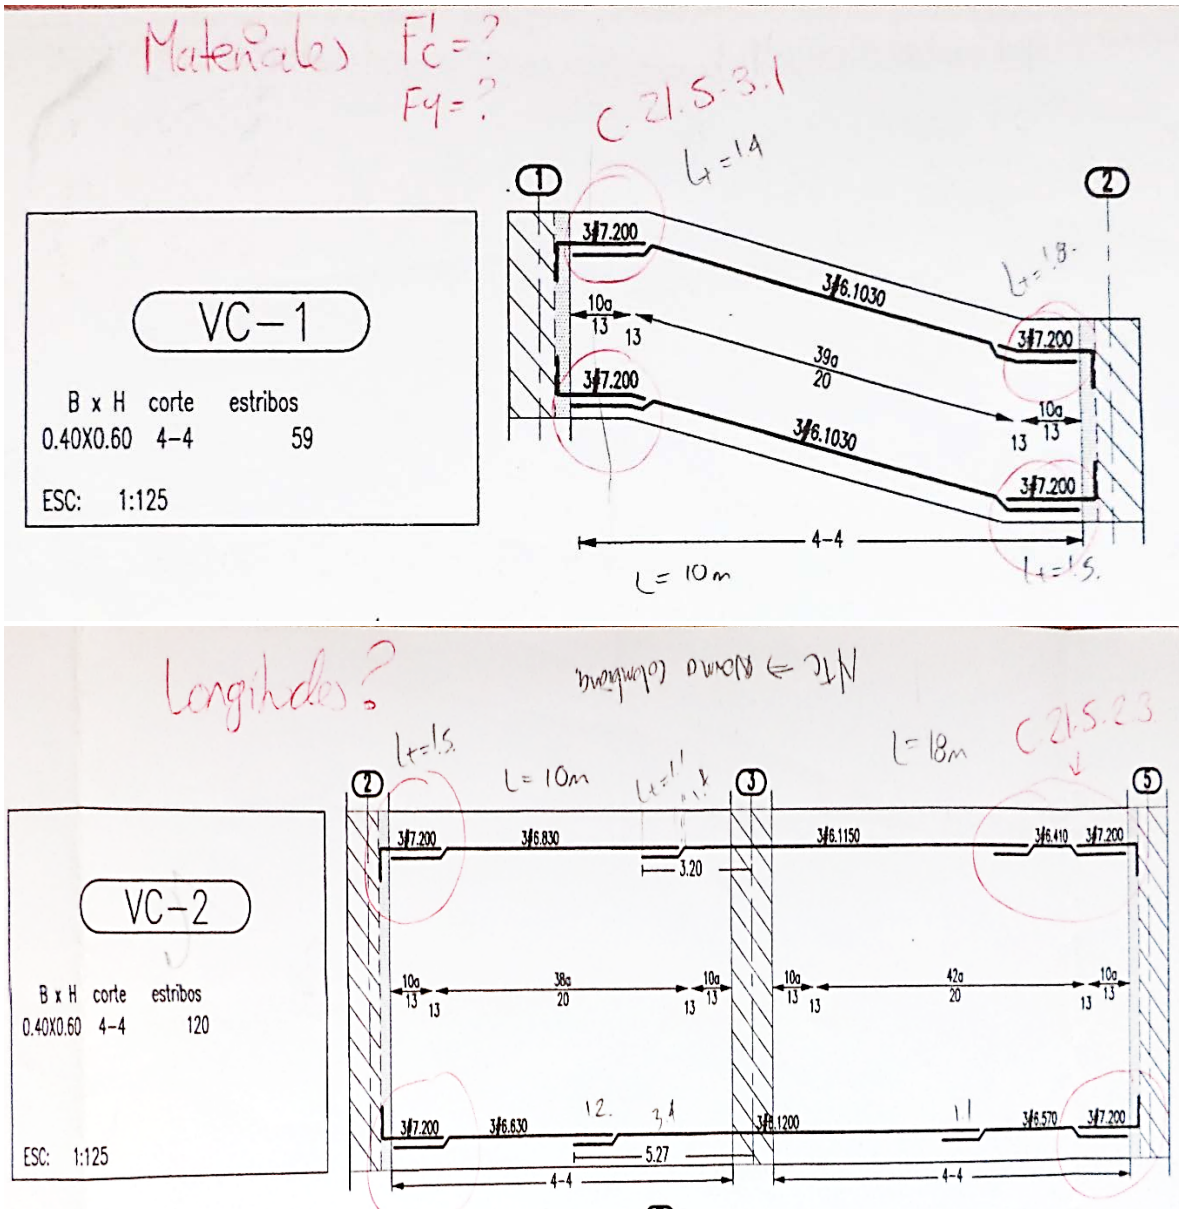 Materiales F'c=?
Fy=?
C.21.5.3.1
Lt=1.4
1
2
VC-1
B x H corte estribos
0.40X0.60 4-4 59
ESC: 1:125
3#7.200
3#6.1030
Lt=1.8
3#7.200
10a
13
13
39a
20
10a
13
13
3#7.200
3#6.1030
3#7.200
4-4
L=10m
Lt=1.5.
Longitudes?
NTC ⇒ Norma Colombiana
C.21.5.2.3
Lt=1.5.
L=10m
L=18m
2
3
5
VC-2
B x H corte estribos
0.40X0.60 4-4 120
ESC: 1:125
3#7.200
3#6.830
3.20
3#6.1150
3#6.410
3#7.200
10a
13
13
38a
20
13
10a
13
10a
13
13
42a
20
13
10a
13
3#7.200
3#6.630
12.
3.4
5.27
3#6.1200
1.1
3#6.570
3#7.200
4-4
4-4